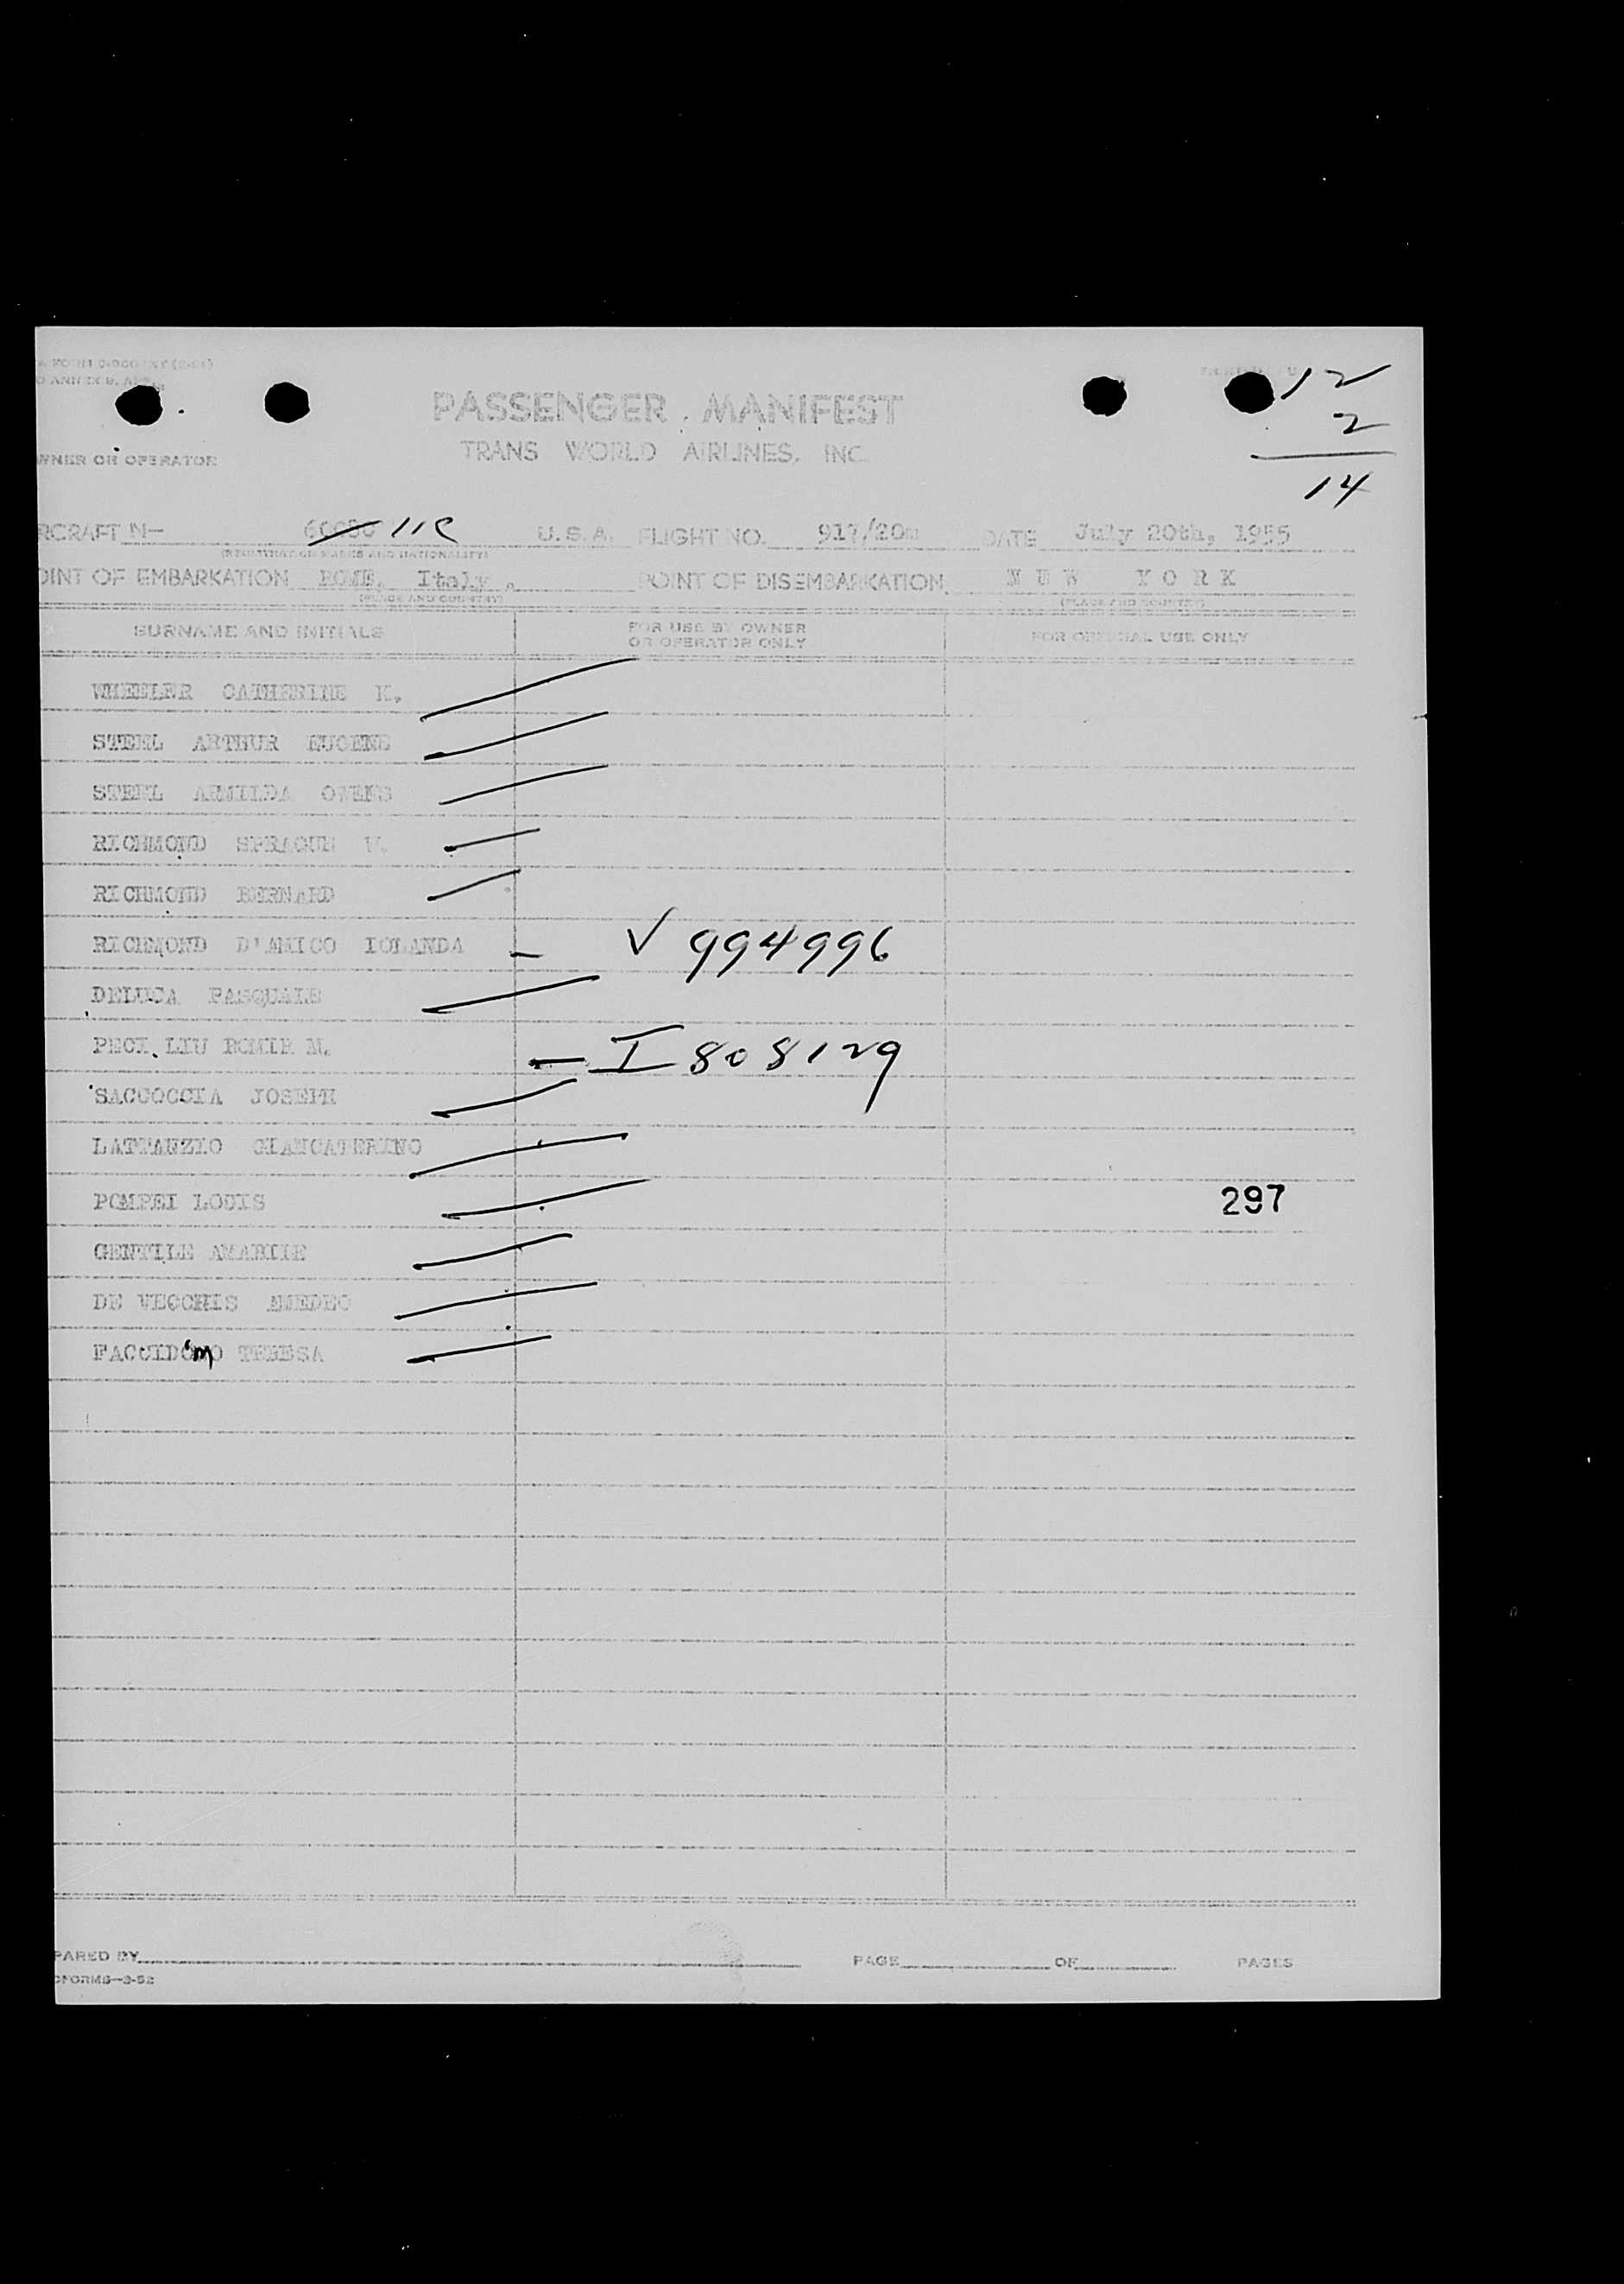 12
2
14
PASSENGER MANIFEST
TRANS WORLD AIRLINES, INC.
WNER OR OPERATOR
RCRAFT N- U.S.A. FLIGHT NO. 917/20 DATE July 20th, 1955
(REGISTRATION MARKS AND NATIONALITY)
OINT OF EMBARKATION ROME, Italy. POINT OF DISEMBARKATION NEW YORK
(PLACE AND COUNTRY) (PLACE AND COUNTRY)
SURNAME AND INITIALS FOR USE BY OWNER OR OPERATOR ONLY FOR OFFICIAL USE ONLY
WHEELER CATHERINE
STEEL ARTHUR EUGENE
STEEL ARMILDA OWENS
RICHMOND SPRAGUE
RICHMOND BERNARD
RICHMOND D'AMICO IOLANDA - V 994996
DELUCA PASQUALE
LIU M. - I 808129
SACCOCCIA JOSEPH
LATTANZIO GIANCATERINO
POMPEI LOUIS 297
GENTILE AMABILE
DE VECCHIS AMEDEO
TERESA
PARED BY PAGE OF PAGES
OFORMS-3-52